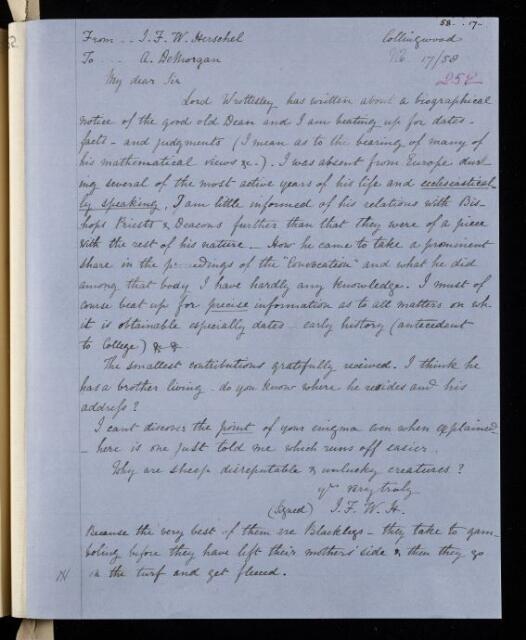 58. .17.
From .. J. F. W. Herschel Collingwood
To ... A. DeMorgan 17/58
258
My dear Sir
Lord Wrottesley has written about a biographical
notice of the good old Dean and I am beating up for dates -
facts - and judgments (I mean as to the bearing of many of
his mathematical views &c.). I was absent from Europe dur-
ing several of the most active years of his life and ecclesiastical-
ly speaking, I am little informed of his relations with Bis-
hops Priests & Deacons further than that they were of a piece
with the rest of his nature - How he came to take a prominent
share in the proceedings of the "Convocation" and what he did
among that body I have hardly any knowledge. I must of
course beat up for precise information as to all matters on wh.
it is obtainable especially dates - early history (antecedent
to College) & &
The smallest contributions gratefully received. I think he
has a brother living - do you know where he resides and his
address?
I cant discover the point of your enigma even when explained
- here is one just told me which runs off easier.
Why are sheep disreputable & unlucky creatures?
yrs very truly
(Signed) J. F. W. H.
Because the very best of them are Blacklegs - they take to gam-
boling before they have left their mothers' side & then they go
on the turf and get fleeced.